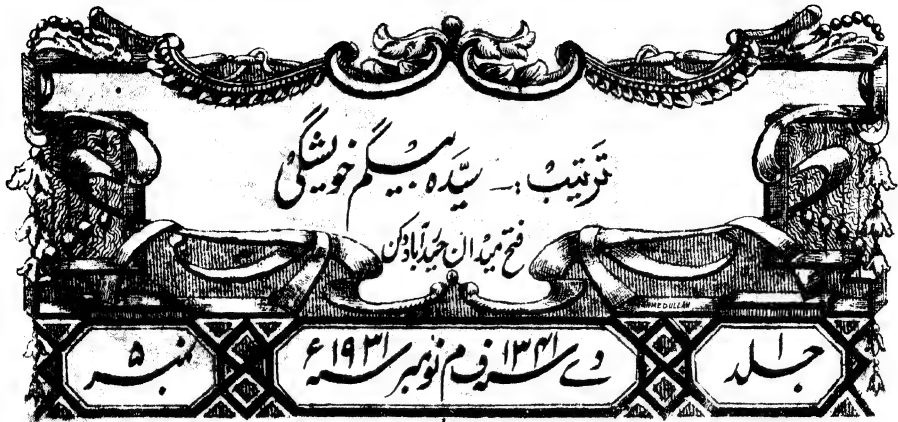 ترتیب :۔ سیّدہ بیگم خویشگی
فتح میدان حیدرآباد دکن
جلد ۱
دے سنہ ۱۳۴۱ ف م نومبر سنہ ۱۹۳۱ ء
نمبر ۵